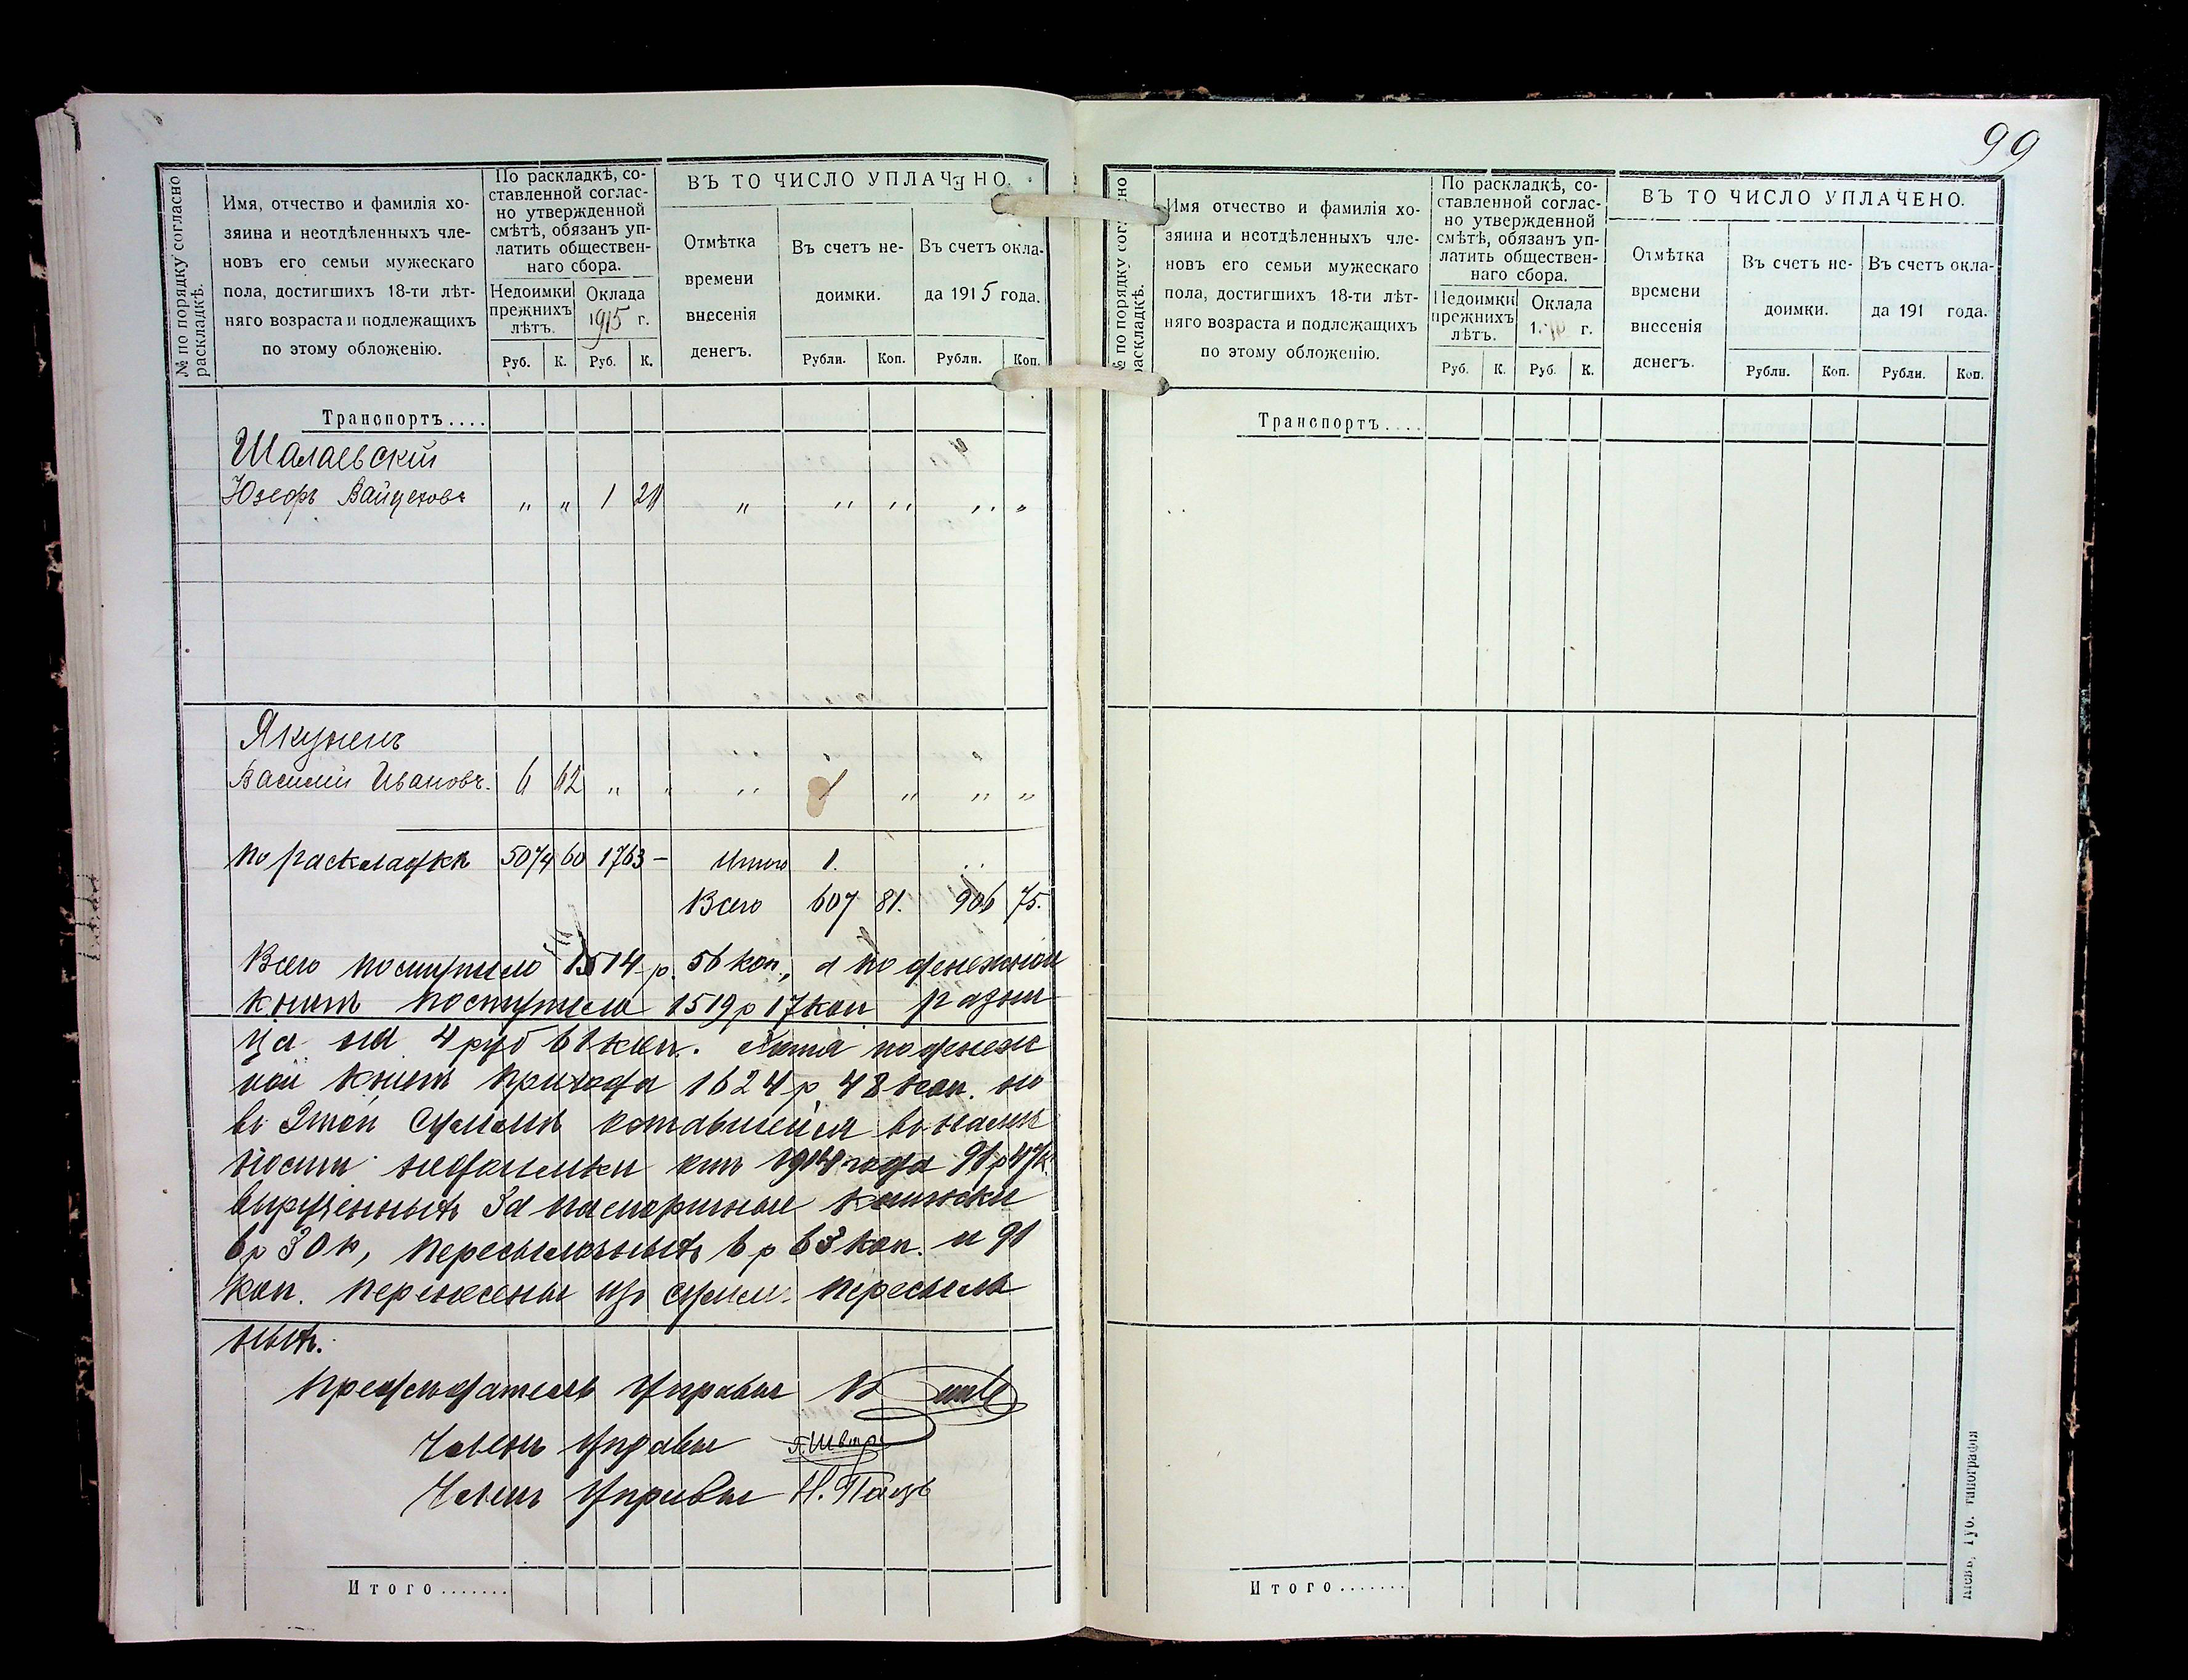 99
№ по порядку согласно раскладкѣ.
Имя, отчество и фамилія хо-
зяина и неотдѣленныхъ чле-
новъ его семьи мужескаго
пола, достигшихъ 18-ти лѣт-
няго возраста и подлежащихъ
по этому обложенію.
По раскладкѣ, со-
ставленной соглас-
но утвержденной
смѣтѣ, обязанъ уп-
латить обществен-
наго сбора.
Недоимки прежнихъ лѣтъ.
Оклада 1915 г.
Руб. К. Руб. К.
ВЪ ТО ЧИСЛО УПЛАЧЕНО.
Отмѣтка
времени
внесенія
денегъ.
Въ счетъ не-
доимки.
Въ счетъ окла-
да 1915 года.
Рубли. Коп. Рубли. Коп.
Транспортъ....
Шалаевскій
Юзефъ " " 1 21 " " " " "
Якунинъ
Василій Ивановъ. 6 62 " " " 1 " " "
По раскладкѣ 5074 60 1763 — Итого 1.
Всего 607 81. 906 75.
Всего поступило 1514 р. 56 коп., а по денежной
книгѣ поступило 1519 р 17 коп разни
ца на 4 руб 61 коп. Хотя по денеж
ной книгѣ прихода 1624 р 48 коп. но
въ этой суммѣ оставшейся въ налич
ности недоимки отъ 1914 года 91 р 47 к.
вырученныхъ за паспортныя книжки
6 р 30 к, пересыльныхъ 6 р 63 коп. и 91
коп. перенесены изъ суммъ пересыль
ныхъ.
Предсѣдатель Управы
Членъ Управы
Членъ Управы Н.
Итого.......
№ по порядку согласно раскладкѣ.
Имя отчество и фамилія хо-
зяина и неотдѣленныхъ чле-
новъ его семьи мужескаго
пола, достигшихъ 18-ти лѣт-
няго возраста и подлежащихъ
по этому обложенію.
По раскладкѣ, со-
ставленной соглас-
но утвержденной
смѣтѣ, обязанъ уп-
латить обществен-
наго сбора.
Недоимки прежнихъ лѣтъ.
Оклада г.
Руб. К. Руб. К.
ВЪ ТО ЧИСЛО УПЛАЧЕНО.
Отмѣтка
времени
внесенія
денегъ.
Въ счетъ не-
доимки.
Въ счетъ окла-
да 191 года.
Рубли. Коп. Рубли. Коп.
Транспортъ....
Итого.......
Губ. типографія